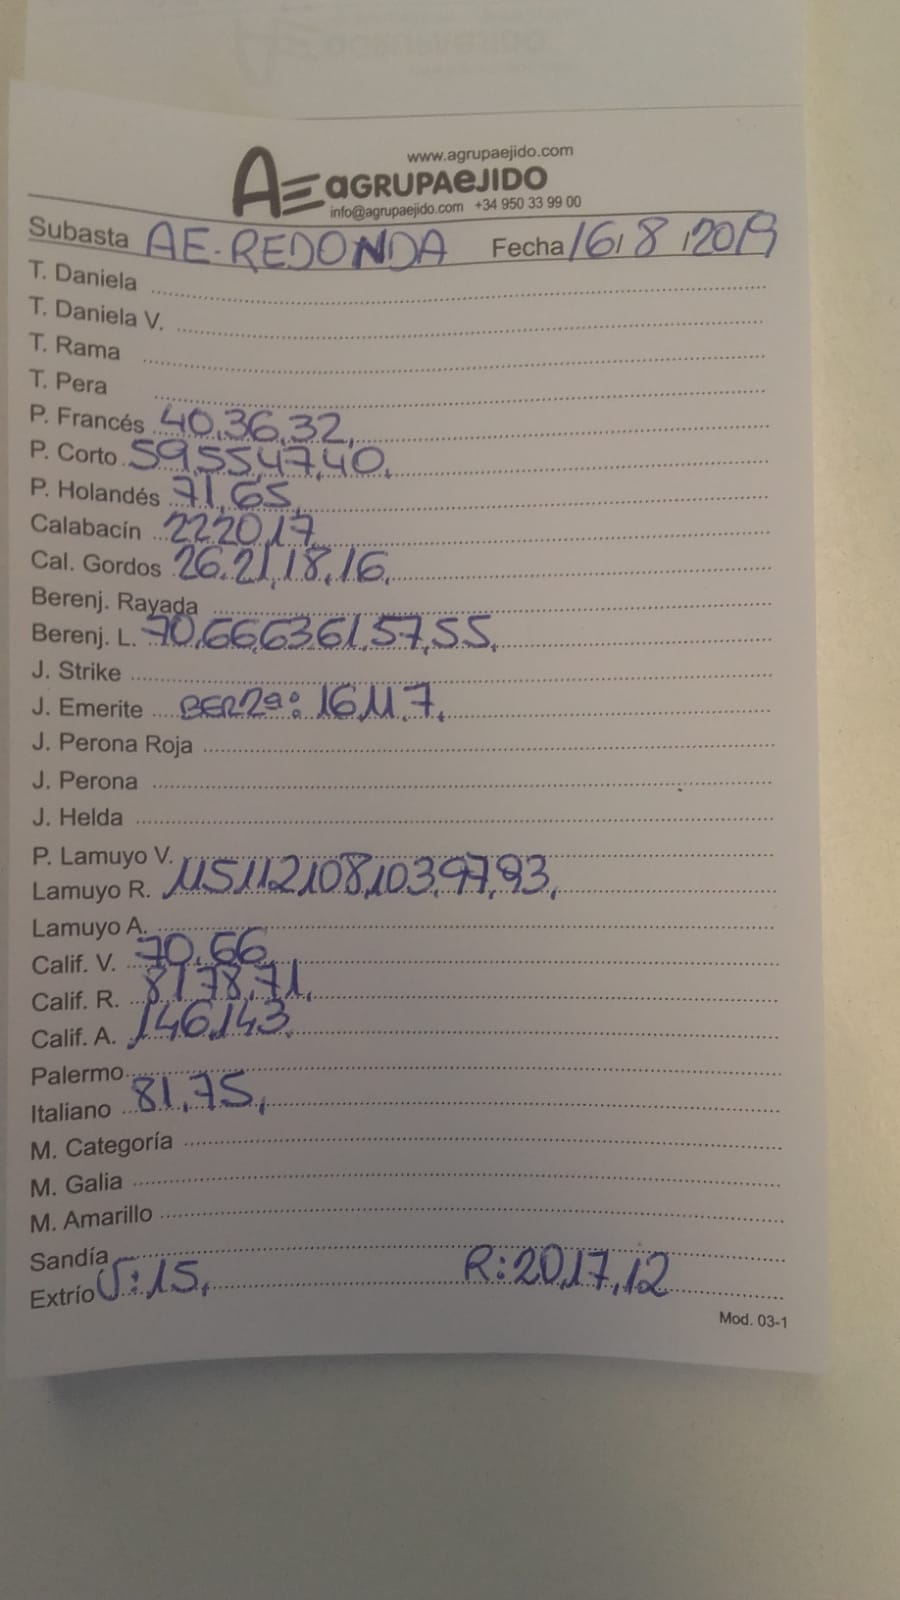 www.agrupaejido.com
AE aGRUPAeJIDO
info@agrupaejido.com +34 950 33 99 00
Subasta AE-REDONDA Fecha 16/8/2019
T. Daniela
T. Daniela V.
T. Rama
T. Pera
P. Francés 40,36,32,
P. Corto 59,55,47,40,
P. Holandés 71,65,
Calabacín 22,20,17
Cal. Gordos 26,21,18,16,
Berenj. Rayada
Berenj. L. 70,66,63,61,57,55,
J. Strike
J. Emerite BER2ª: 16,11,7,
J. Perona Roja
J. Perona
J. Helda
P. Lamuyo V.
Lamuyo R. 115,112,108,103,97,93,
Lamuyo A.
Calif. V. 70,66,
Calif. R. 81,78,71,
Calif. A. 146,143,
Palermo
Italiano 81,75,
M. Categoría
M. Galia
M. Amarillo
Sandía
Extrío V:15, R:20,17,12
Mod. 03-1